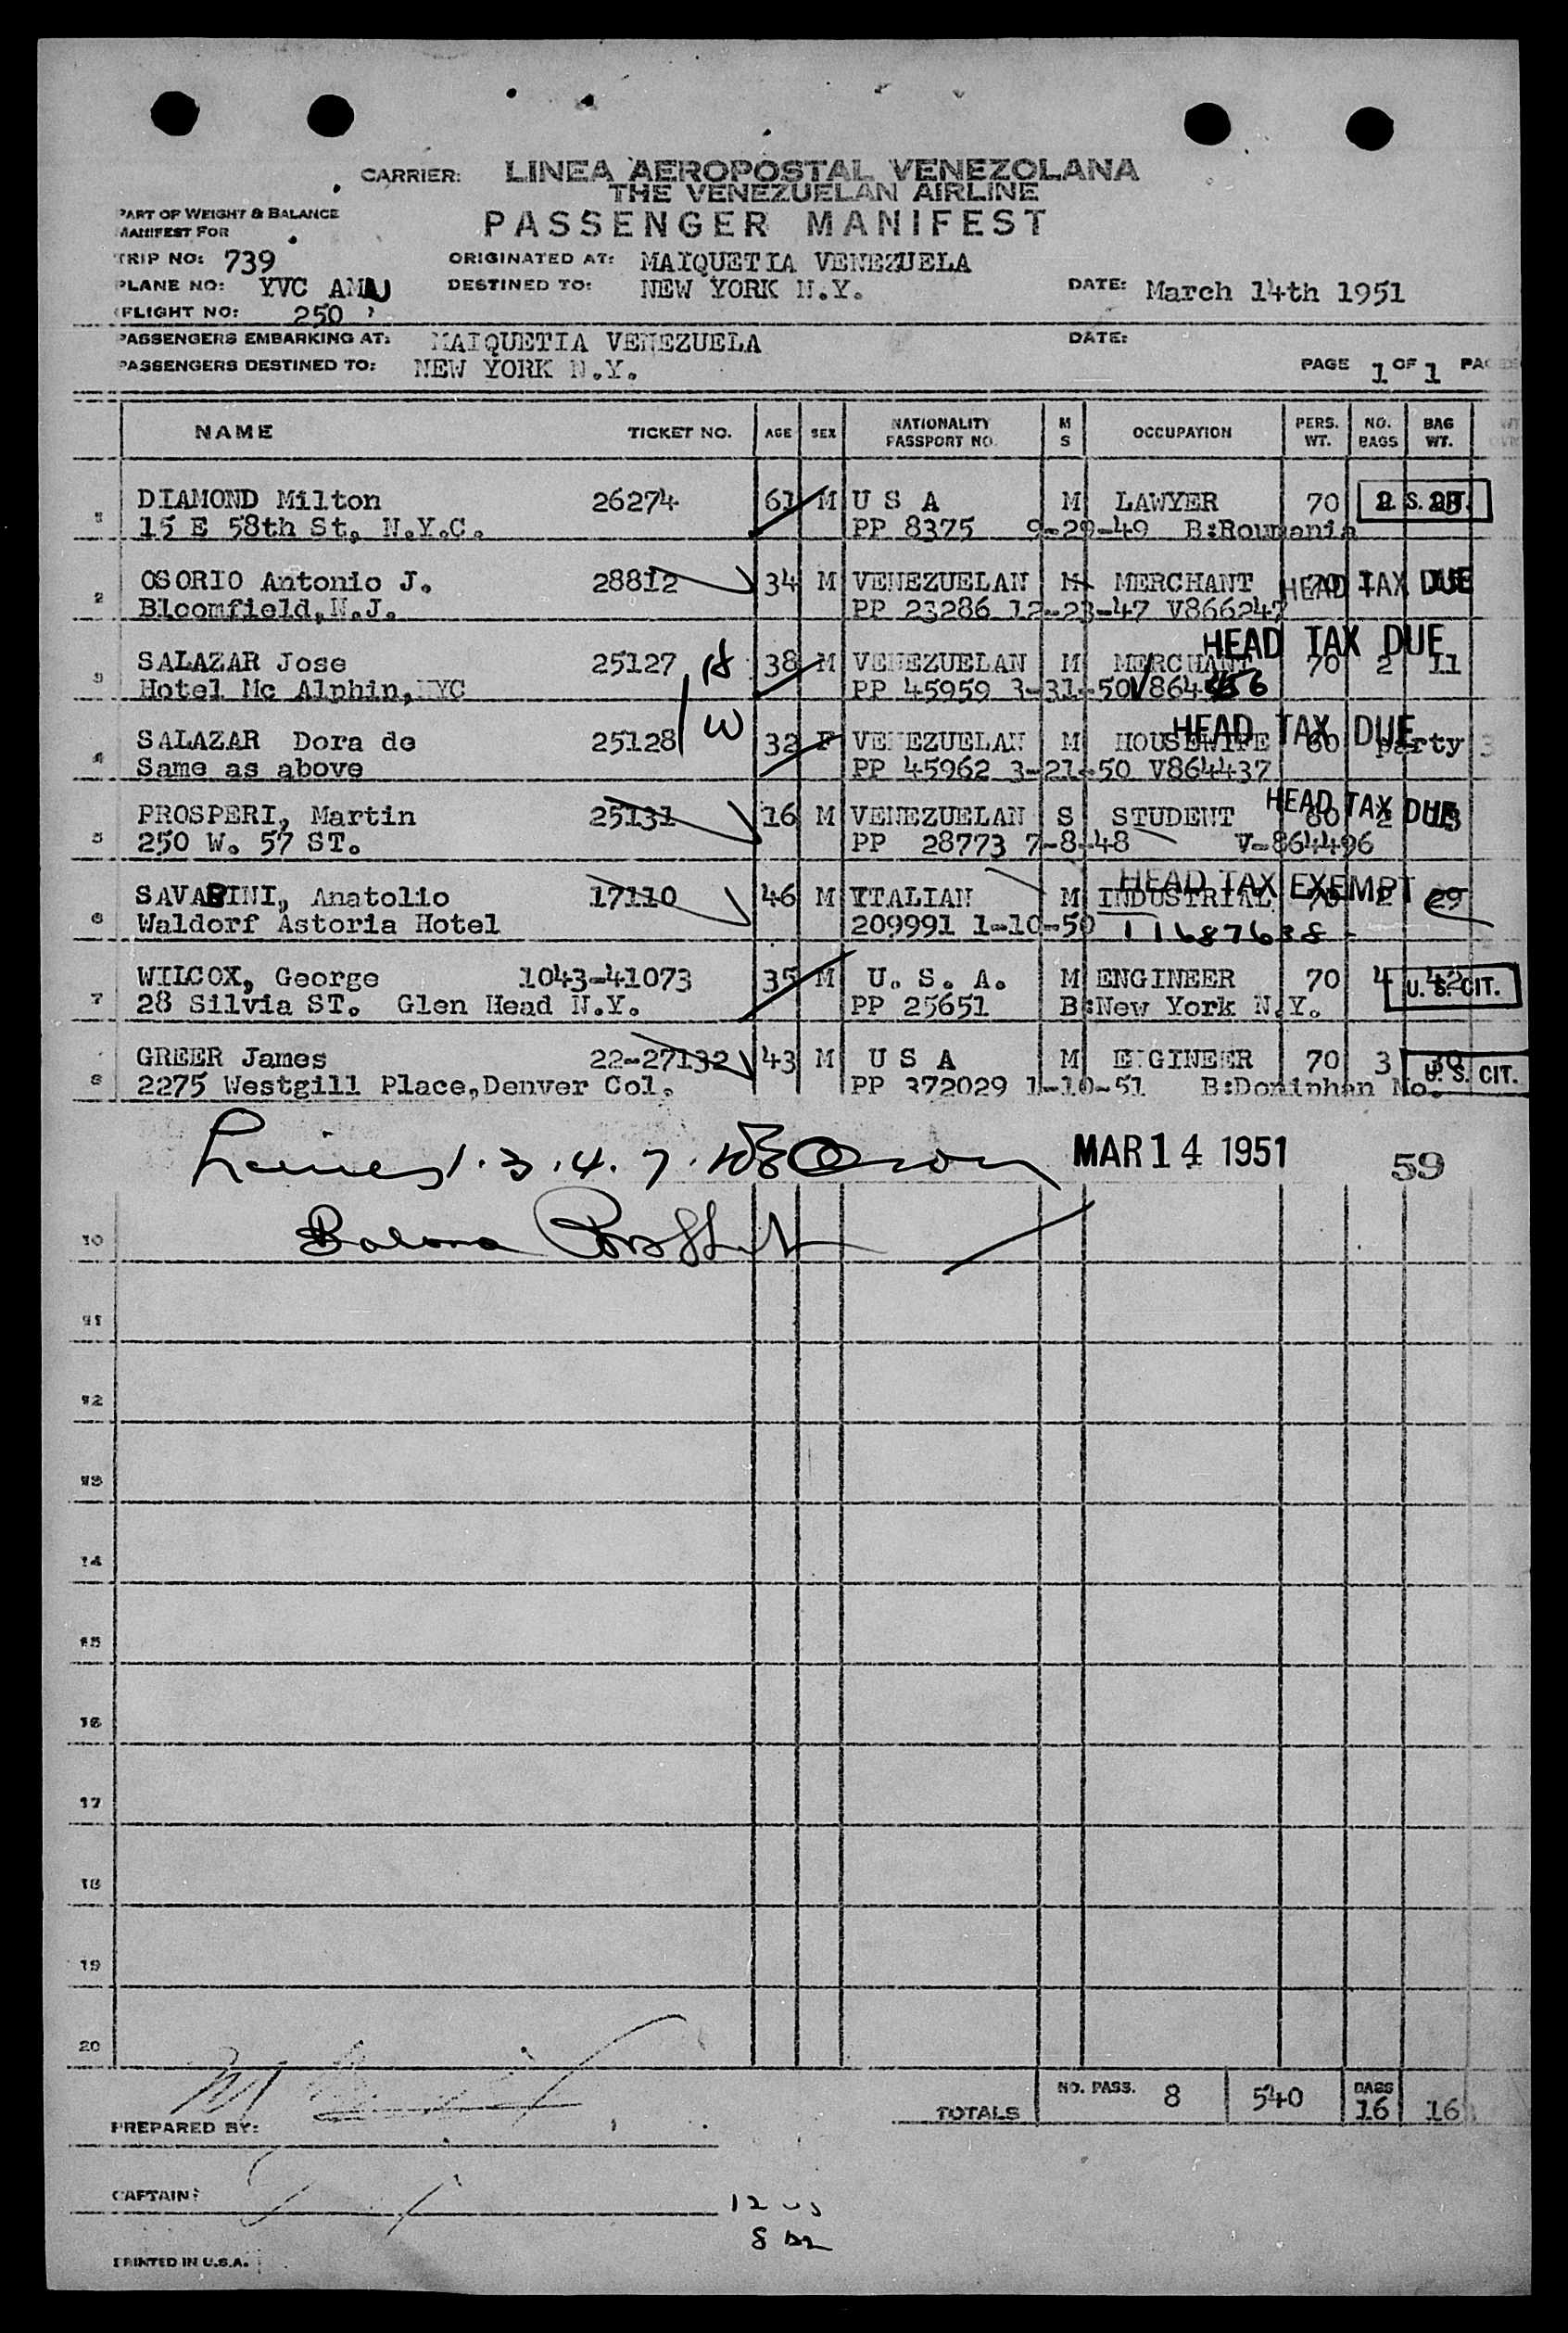 CARRIER: LINEA AEROPOSTAL VENEZOLANA
THE VENEZUELAN AIRLINE
PART OF WEIGHT & BALANCE
MANIFEST FOR
PASSENGER MANIFEST
TRIP NO: 739 ORIGINATED AT: MAIQUETIA VENEZUELA
PLANE NO: YVC DESTINED TO: NEW YORK N.Y. DATE: March 14th 1951
FLIGHT NO: 250
PASSENGERS EMBARKING AT: MAIQUETIA VENEZUELA DATE:
PASSENGERS DESTINED TO: NEW YORK N.Y. PAGE 1 OF 1
NAME TICKET NO. AGE SEX NATIONALITY PASSPORT NO. M S OCCUPATION PERS. WT. NO. BAGS BAG WT.
DIAMOND Milton 26274 61 M U S A M LAWYER 70
15 E 58th St, N.Y.C. PP 8375 9-29-49 B:Roumania
2 OSORIO Antonio J. 28812 34 M VENEZUELAN M MERCHANT HEAD TAX DUE
Bloomfield,N.J. PP 23286 12-23-47 V866247
HEAD TAX DUE
SALAZAR Jose 25127 H 38 M VENEZUELAN M MERCHANT 70 2 11
Hotel Mc Alphin,NYC PP 45959 3-31-50
HEAD TAX DUE
4 SALAZAR Dora de 25128 W 32 F VENEZUELAN M HOUSEWIFE 60 party
Same as above PP 45962 3-21-50 V864437
5 PROSPERI, Martin 25131 16 M VENEZUELAN S STUDENT HEAD TAX DUE
250 W. 57 ST. PP 28773 7-8-48 V-864496
HEAD TAX EXEMPT
6 SAVARINI, Anatolio 17110 46 M ITALIAN M INDUSTRIAL 70 2 29
Waldorf Astoria Hotel 209991 1-10-50 11687638
7 WILCOX, George 1043-41073 35 M U. S. A. M ENGINEER 70 4 42 U. S. CIT.
28 Silvia ST. Glen Head N.Y. PP 25651 B:New York N.Y.
8 GREER James 22-27132 43 M U S A M ENGINEER 70 3 30 U. S. CIT.
2275 Westgill Place,Denver Col. PP 372029 1-10-51 B:Doniphan Mo.
Lines 1.3.4.7. MAR 14 1951 59
10
11
12
13
14
15
16
17
18
19
20
TOTALS NO. PASS. 8 540 BAGS 16 16
PREPARED BY:
CAPTAIN:
12 us
8
PRINTED IN U.S.A.